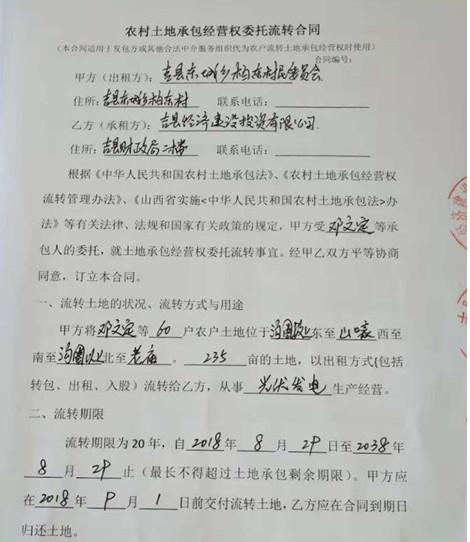 农村土地承包经营权委托流转合同
(本合同适用于发包方或其他合法中介服务组织代为农户流转土地承包经营权时使用)
合同编号:
甲方(出租方): 吉县东城乡柏东村村民委员会
住所: 吉县东城乡柏东村 联系电话:
乙方(承租方): 吉县经济建设投资有限公司
住所: 吉县财政局二楼 联系电话:
根据《中华人民共和国农村土地承包法》、《农村土地承包经营权
流转管理办法》、《山西省实施<中华人民共和国农村土地承包法>办
法》等有关法律、法规和国家有关政策的规定,甲方受 邓文定 等承
包人的委托,就土地承包经营权委托流转事宜。经甲乙双方平等协商
同意,订立本合同。
一、流转土地的状况、流转方式与用途
甲方将 邓文定 等 60 户农户土地位于 东至 西至
南至 北至 老庙 。 235 亩的土地,以出租方式(包括
转包、出租、入股)流转给乙方,从事 光伏发电 生产经营。
二、流转期限
流转期限为 20 年,自 2018 年 8 月 29 日至 2038 年
8 月 29 止(最长不得超过土地承包剩余期限)。甲方应
在 2018 年 9 月 1 日前交付流转土地,乙方应在合同到期日
归还土地。